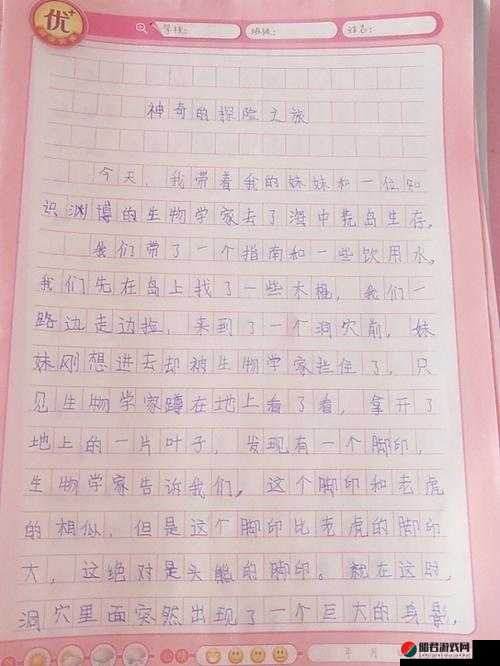 优
学校: 班级: 姓名:
神奇的探险之旅
今天，我带着我的妹妹和一位知
识渊博的生物学家去了海中荒岛生存，
我们带了一个指南和一些饮用水，
我们先在岛上找了一些木棍，我们一
路边走边捡，来到了一个洞穴前，妹
妹刚想进去却被生物学家拦住了，只
见生物学家蹲在地上看了看，拿开了
地上的一片叶子，发现有一个脚印，
生物学家告诉我们，这个脚印和老虎
的相似，但是这个脚印比老虎的脚印
大，这绝对是头熊的脚印。就在这时，
洞穴里面突然出现了一个巨大的身影，
年 月
昭君游戏网